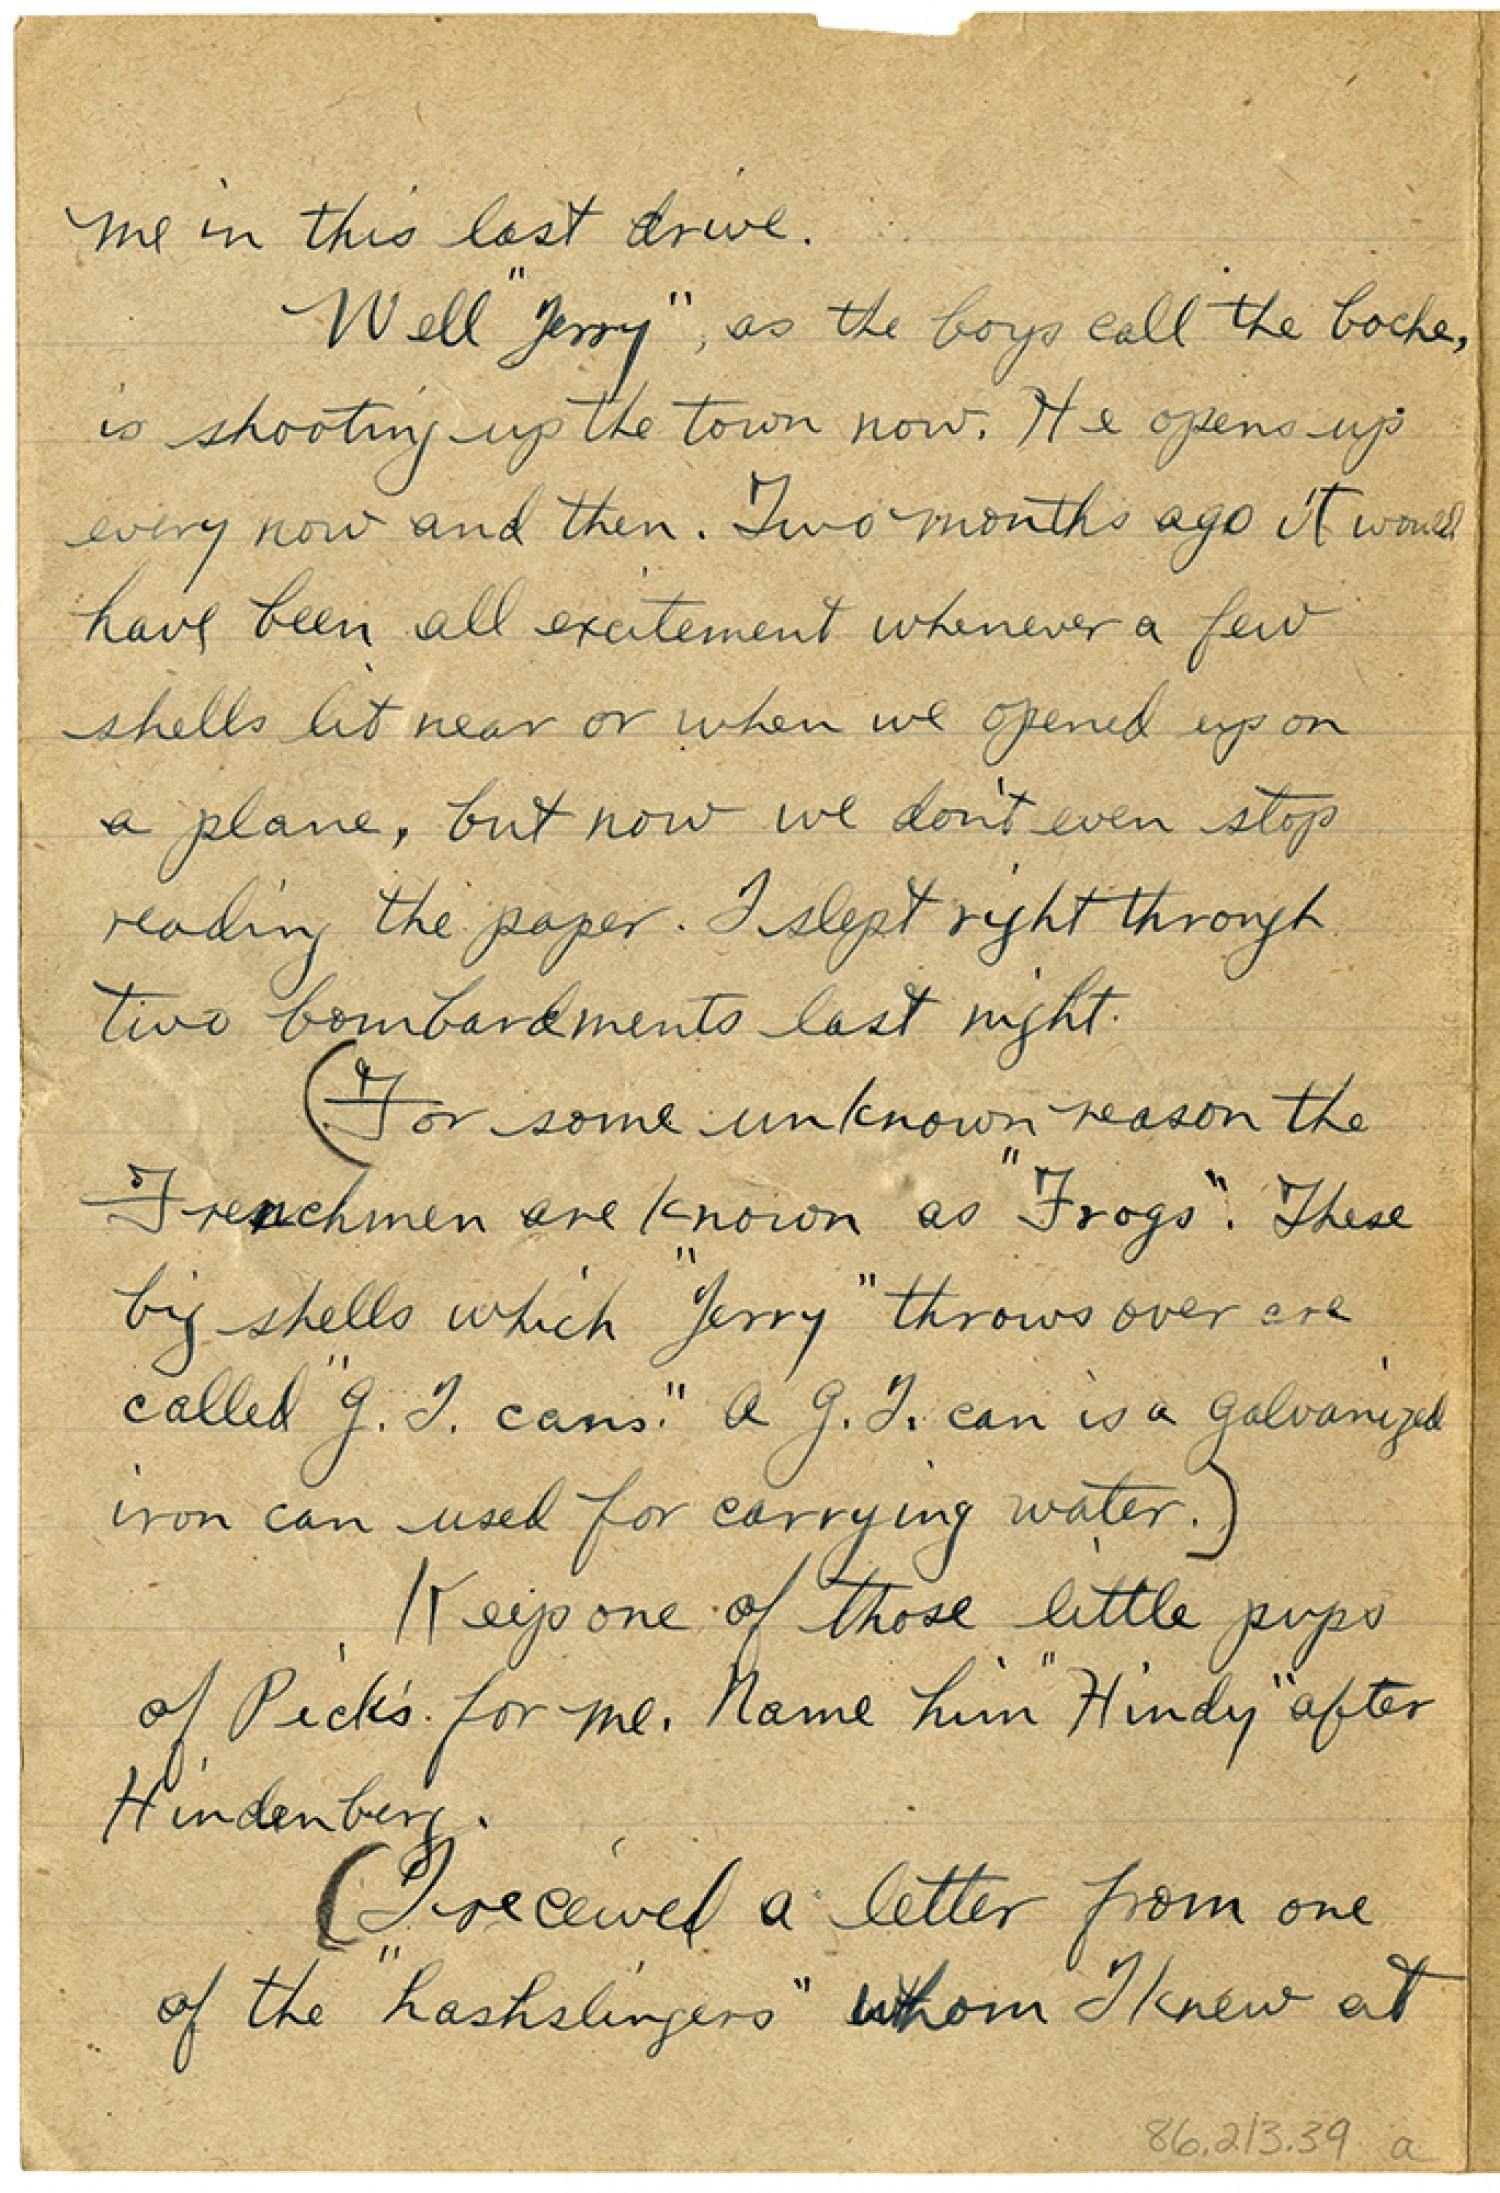 me in this last drive.
Well "Jerry", as the boys call the boche,
is shooting up the town now. He opens up
every now and then. Two months ago it would
have been all excitement whenever a few
shells lit near or when we opened up on
a plane, but now we don't even stop
reading the paper. I slept right through
two bombardments last night.
(For some unknown reason the
Frenchmen are known as "Frogs". These
big shells which "Jerry" throws over are
called "G. I. cans." A G. I. can is a galvanized
iron can used for carrying water.)
Keep one of those little pups
of Pick's for me. Name him "Hindy" after
Hindenberg.
(I received a letter from one
of the "hashslingers" whom I knew at
86.213.39 a